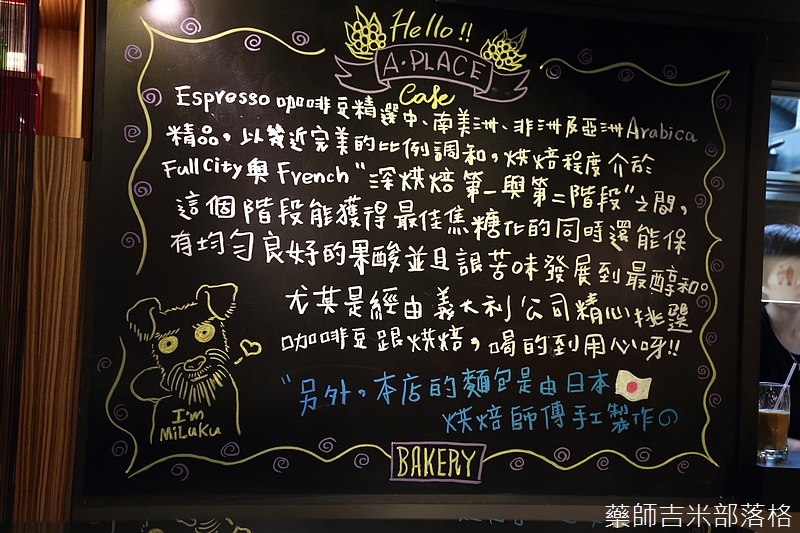 Hello!!
A·PLACE
Cafe
Espresso 咖啡豆精選中、南美洲、非洲及亞洲Arabica
精品，以幾近完美的比例調和，烘焙程度介於
Full City與 French "深烘焙第一與第二階段"之間，
這個階段能獲得最佳焦糖化的同時還能保
有均勻良好的果酸並且讓苦味發展到最醇和。
尤其是經由義大利公司精心挑選
咖啡豆跟烘焙，喝的到用心呀!!
"另外，本店的麵包是由日本
烘焙師傅手工製作の
I'm
MiLuku
BAKERY
藥師吉米部落格